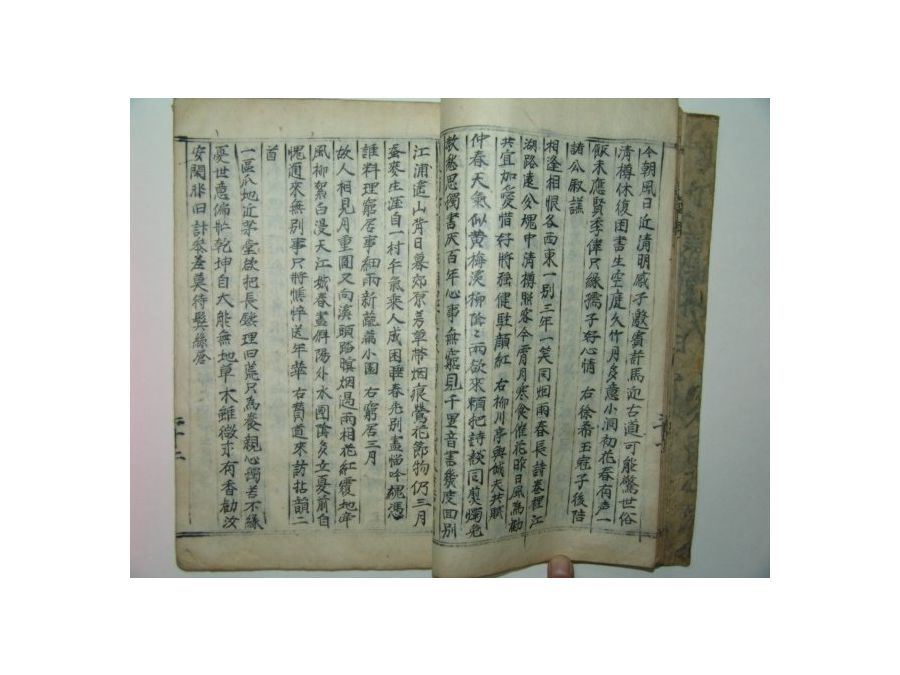 今朝風日近清明感子邀賓計馬迎古道可能驚世俗
清樽休復困書生空庭久竹月多意小澗初花春有声一
飯未應賢季偉只緣孺子好心情 右徐希玉冠子後陪
諸公厰謙
相逢相恨各西東一別三年一笑同烟雨春長詩卷裡江
湖路遠公槐中清樽照客今宵月寒食催花昨日風為勸
共宜加愛惜好將强健駐顔紅 右柳川亭與城天共賦
仲春天氣似黄梅溪柳陰陰雨欲來頼把詩談同剪燭免
教愁思獨書灰百年心事無窮見千里音書幾度回別
江浦遙山背日暮郊原芳草帶烟痕鶯花節物仍三月
蚕麥生涯自一村午氣來人成困睡春光別盡惱吟魂憑
誰料理窮居事細雨新蔬篇小園 右窮居三月
故人相見月重圓又向溪頭踏暝烟過雨相花紅覆地
風柳絮白漫天江城春盡斜陽外水國陰多立夏前自
愧邇來無別事只將憔悴送年華 右賛道來訪拈韻二
首
一區瓜地近茅堂欲把長鑱理回荒只為養親心獨苦不緣
憂世意偏忙乾坤自大能無地草木雖微亦有香勸汝
安閑非旧計 莫待鬂絲蒼
二十二